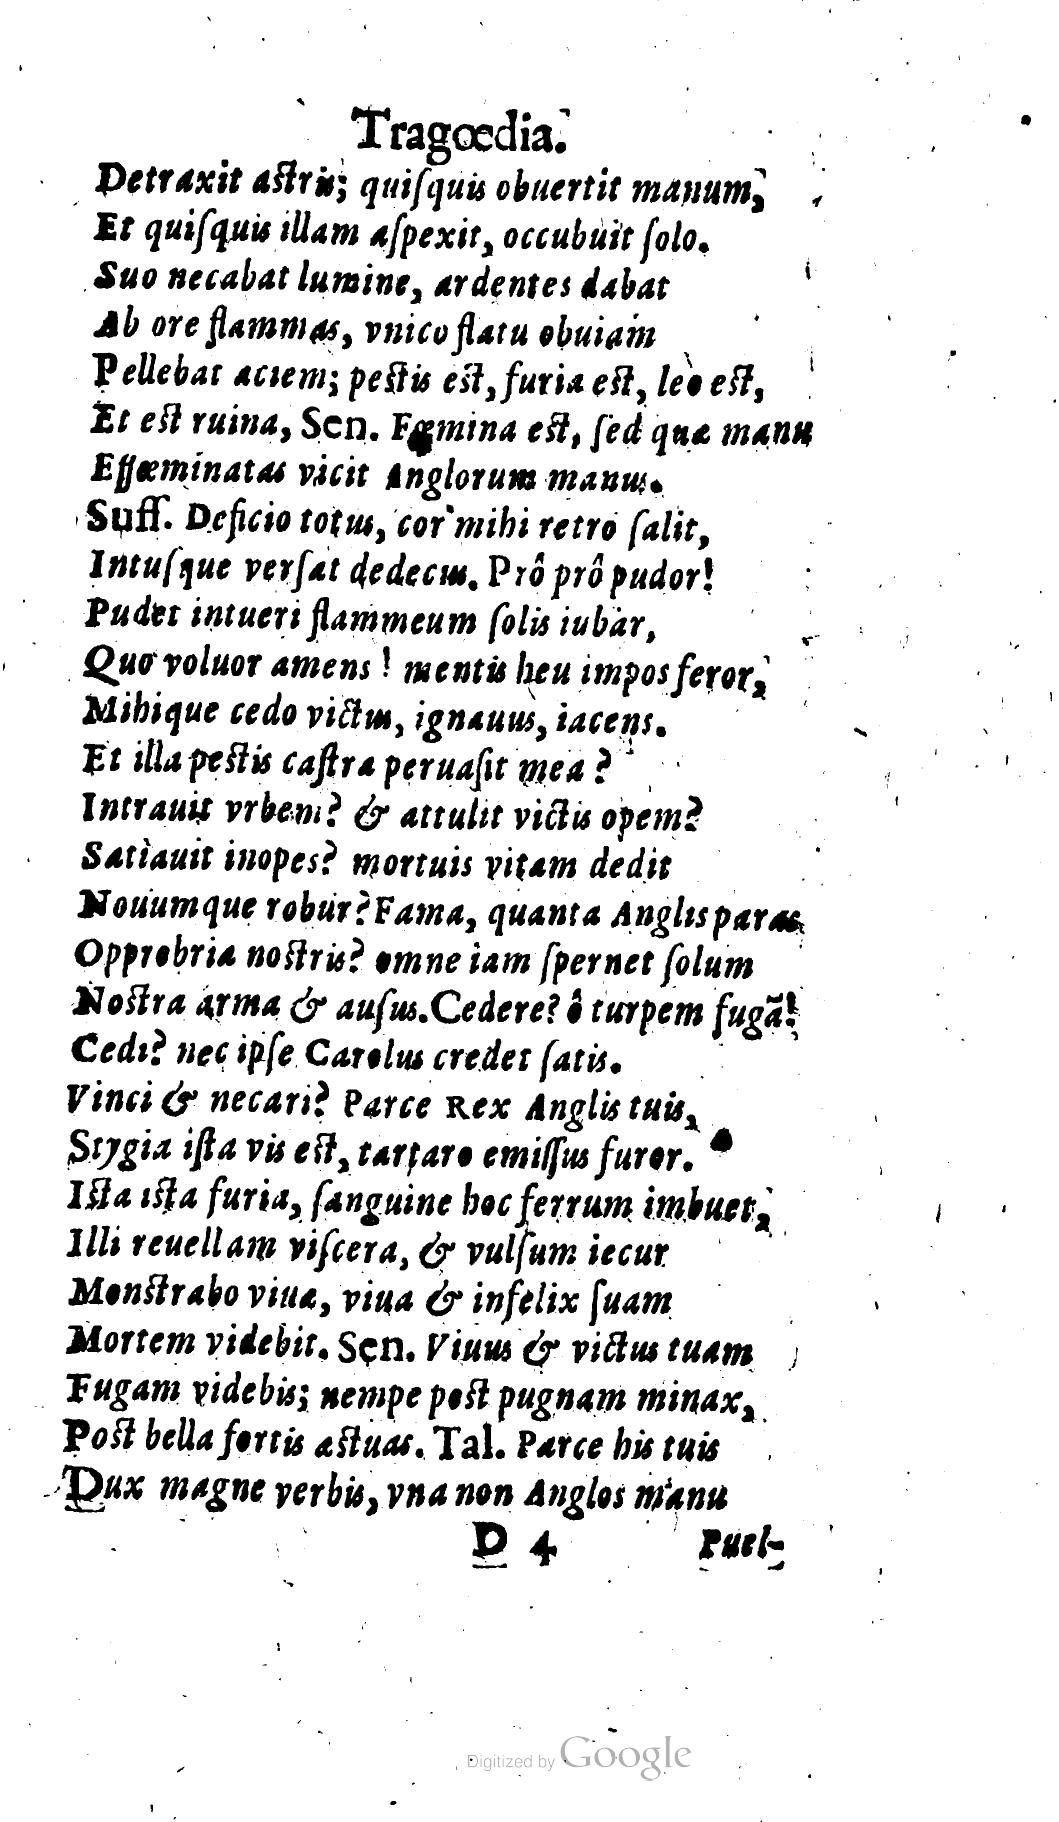 Tragœdia.
Detraxit astris; quiſquis obuertit manum,
Et quiſquis illam aſpexit, occubuit ſolo.
Suo necabat lumine, ardentes dabat
Ab ore flammas, vnico flatu obuiam
Pellebat aciem; pestis est, furia est, leo est,
Et est ruina, Sen. Fœmina est, ſed quæ manu
Effœminatas vicit Anglorum manus.
Suff. Deficio totus, cor mihi retro ſalit,
Intuſque verſat dedecus. Prô prô pudor!
Pudet intueri flammeum ſolis iubar,
Quo voluor amens! mentis heu impos feror,
Mihique cedo victus, ignauus, iacens.
Et illa pestis caſtra peruaſit mea?
Intrauit vrbem? & attulit victis opem?
Satiauit inopes? mortuis vitam dedit
Nouumque robur? Fama, quanta Anglis paras
Opprobria nostris? omne iam ſpernet ſolum
Nostra arma & auſus. Cedere? ô turpem fugã!
Cedi? nec ipſe Carolus credet ſatis.
Vinci & necari? Parce Rex Anglis tuis,
Stygia iſta vis est, tartaro emiſſus furor.
Ista ista furia, ſanguine hoc ferrum imbuet,
Illi reuellam viſcera, & vulſum iecur
Monstrabo viuæ, viua & infelix ſuam
Mortem videbit. Sen. Viuus & victus tuam
Fugam videbis; nempe post pugnam minax,
Post bella fortis æstuas. Tal. Parce his tuis
Dux magne verbis, vna non Anglos manu
D 4
Puel-
Digitized by Google